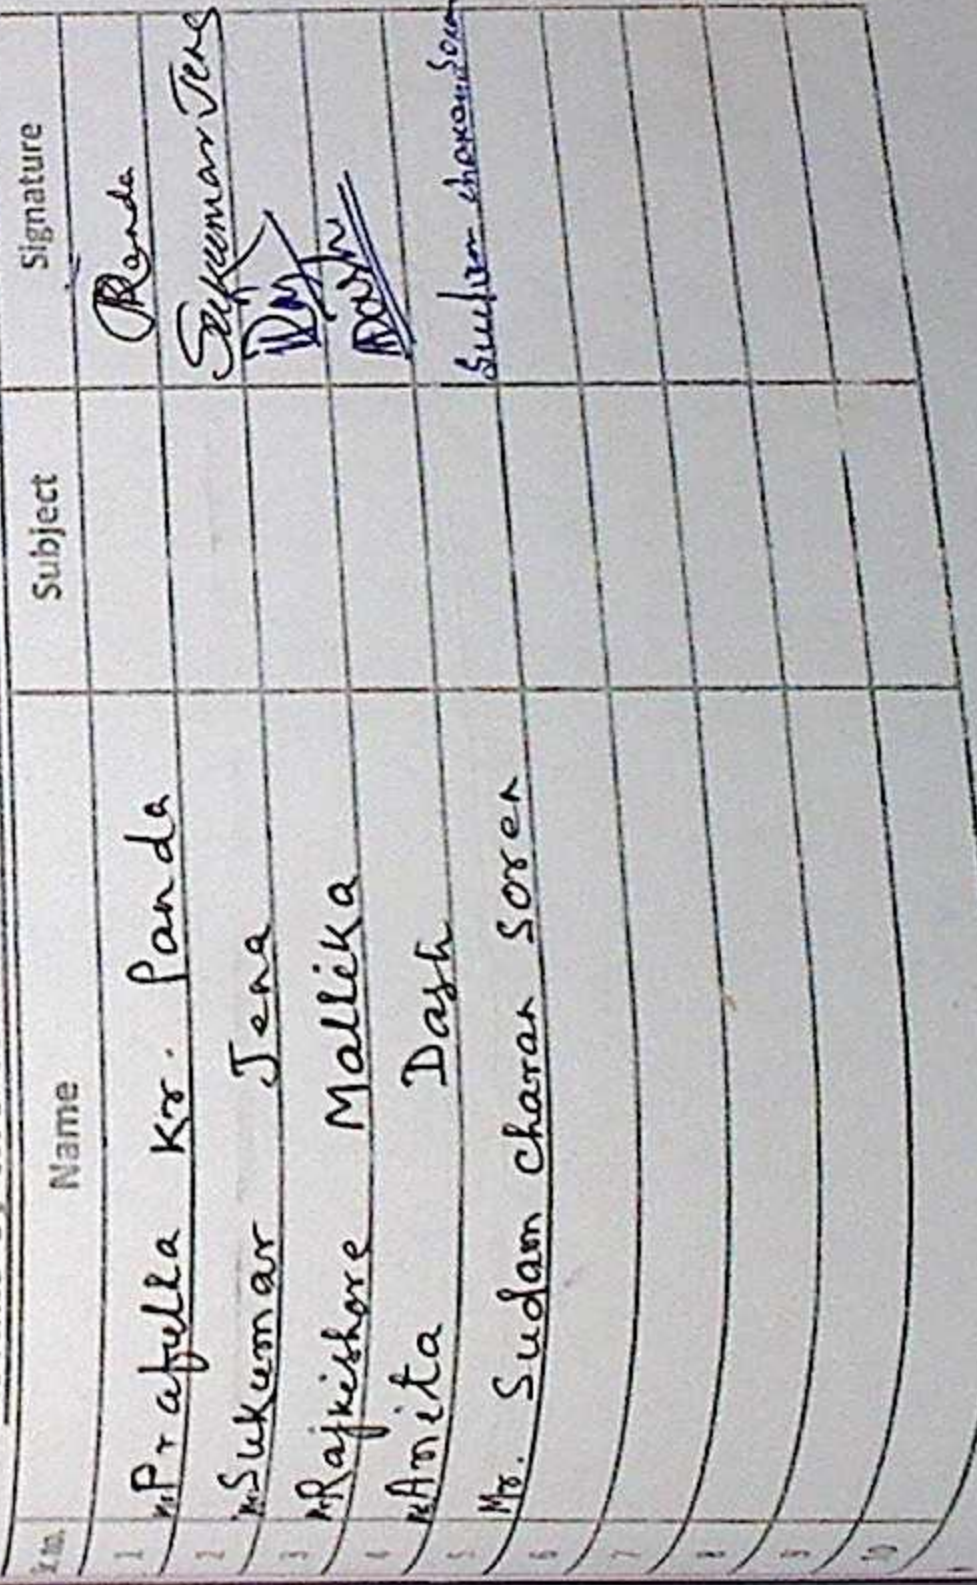 Sr. no. Name Subject Signature
1 Mr. Prafulla Kr. Panda Panda
2 Mr. Sukumar Jena Sukumar Jena
3 Mr. Rajkishore Mallika
4 Anita Dash Dash
5 Mr. Sudam charan Soren Sudam charan Soren
6
7
8
9
10